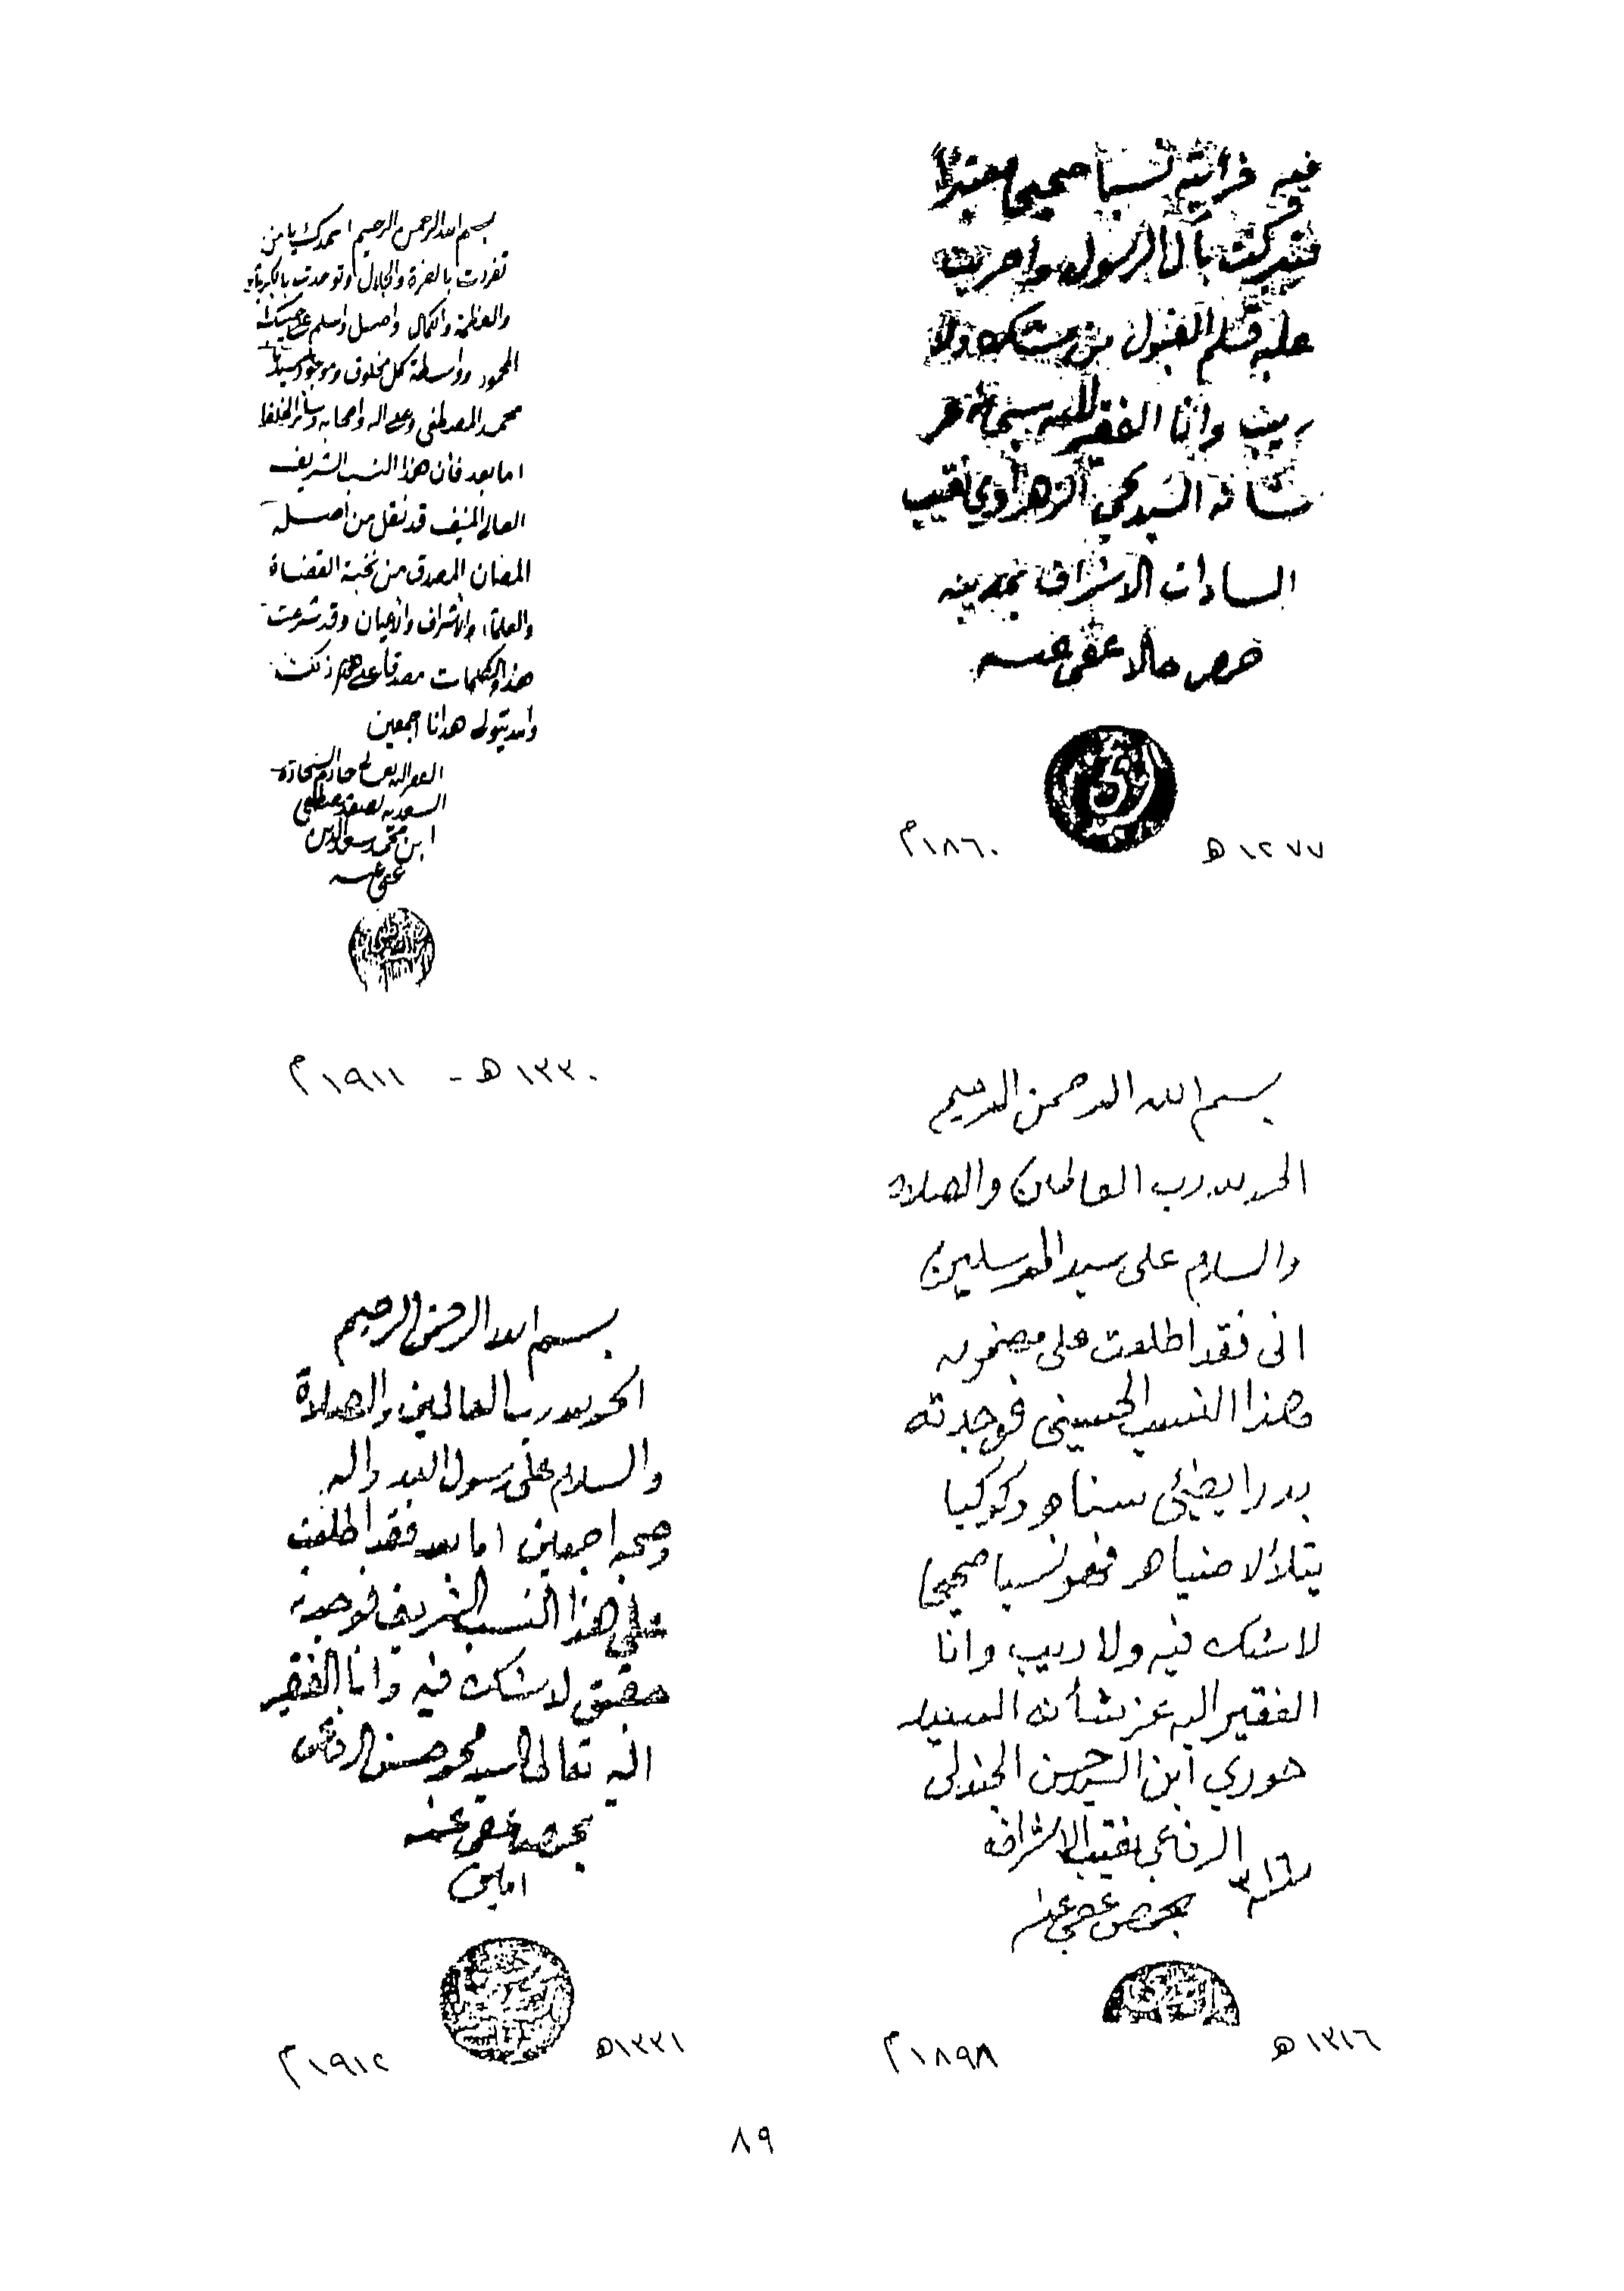 فيه فرأيته نسبا صحيحا معتبرًا
فتبركت بآل الرسول واجريت
عليه قلم القبول من شك ولا
ريب وانا الفقير لله سبحانه عز
شانه السيد يحيى الزهراوي نقيب
السادات الاشراف بمدينه
حمص حالا عفي عنه
١٢٧٧ هـ
١٨٦٠ م
بسم الله الرحمن الرحيم احمدك يا من
تفردت بالعزة والجلال وتوحدت بالكبرياء
والعظمة والكمال واصلي واسلم على حبيبك
المحمود وواسطة كل مخلوق وموجود سيدنا
محمد المصطفى وعلى اله واصحابه وسائر الخلفا
اما بعد فان هذا النسب الشريف
العالي المنيف قد نقل من اصله
المصان المصدق من نخبة القضاة
والعلماء والاشراف والاعيان وقد شرعت
هذه الكلمات مصدقا على ذلك
والله يتولى هدانا اجمعين
خادم السجادة
السعديه بحمص مصطفى
ابن محمد سعد الدين
عفي عنه
١٣٣٠ هـ - ١٩١١ م
بسم الله الرحمن الرحيم
الحمد لله رب العالمين والصلاة
والسلام على سيد المرسلين
اني فقد اطلعت على مضمون
هذا النسب الحسيني فوجدته
بدرا يضيئ سناه وكوكبا
يتلألأ ضياه فهو نسبا صحيحا
لا شك فيه ولا ريب وانا
الفقير اليه عز شأنه السيد
حوري ابن السيد حسن الجندلي
الرفاعي نقيب الاشراف
بحمص عفي عنه
سنة ٣١٦
١٣١٦ هـ
١٨٩٨ م
بسم الله الرحمن الرحيم
الحمد لله رب العالمين والصلاة
والسلام على رسول الله واله
وصحبه اجمعين اما بعد فقد اطلعت
على هذا النسب الشريف فوجدته
حقيق لا شك فيه وانا الفقير
اليه تعالى السيد محمد حسن الرفاعي
بحمص عفي عنه
امين
١٣٣١ هـ
١٩١٢ م
٨٩